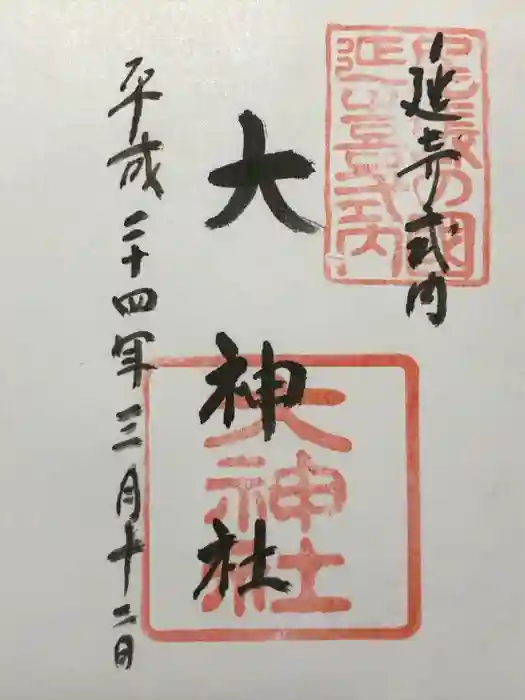 延喜式内
尾張の國
延喜式内
大神社
大神社
平成二十四年三月十二日